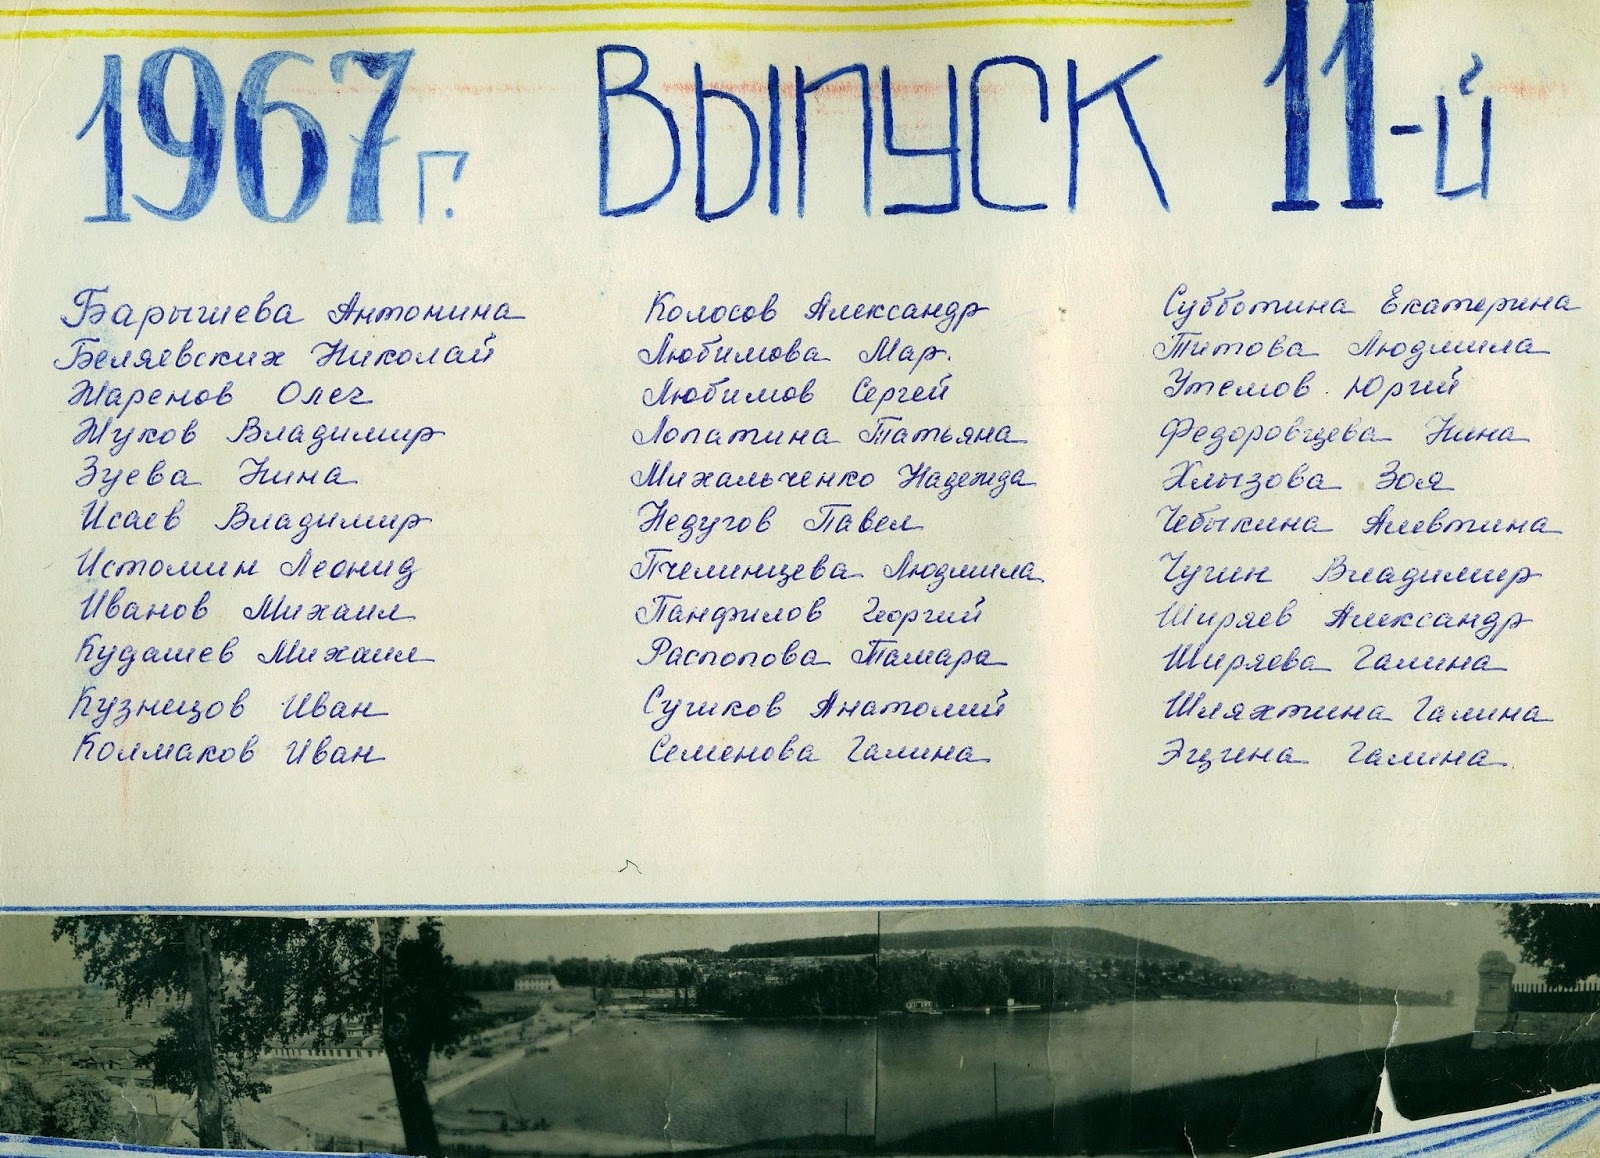 1967 г. Выпуск 11-й
Барышева Антонина
Беляевских Николай
Жаренов Олег
Жуков Владимир
Зуева Нина
Исаев Владимир
Истомин Леонид
Иванов Михаил
Кудашев Михаил
Кузнецов Иван
Колмаков Иван
Колосов Александр
Любимова Мар.
Любимов Сергей
Лопатина Татьяна
Михальченко Надежда
Недугов Павел
Пчелинцева Людмила
Панфилов Георгий
Распопова Тамара
Сучков Анатолий
Семенова Галина
Субботина Екатерина
Титова Людмила
Утемов Юрий
Федоровцева Нина
Хлызова Зоя
Чебыкина Алевтина
Чугин Владимир
Ширяев Александр
Ширяева Галина
Шляхтина Галина
Галина